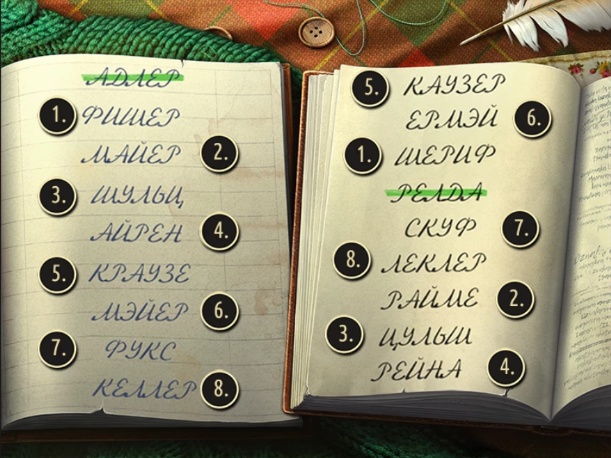 АДЛЕР
1. ФИШЕР
МАЙЕР 2.
3. ШУЛЬЦ
АЙРЕН 4.
5. КРАУЗЕ
МЭЙЕР 6.
7. ФУКС
КЕЛЛЕР 8.
5. КАУЗЕР
ЕРМЭЙ 6.
1. ШЕРИФ
РЕЛДА
СКУФ 7.
8. ЛЕКЛЕР
РАЙМЕ 2.
3. ЦУЛЬШ
РЕЙНА 4.